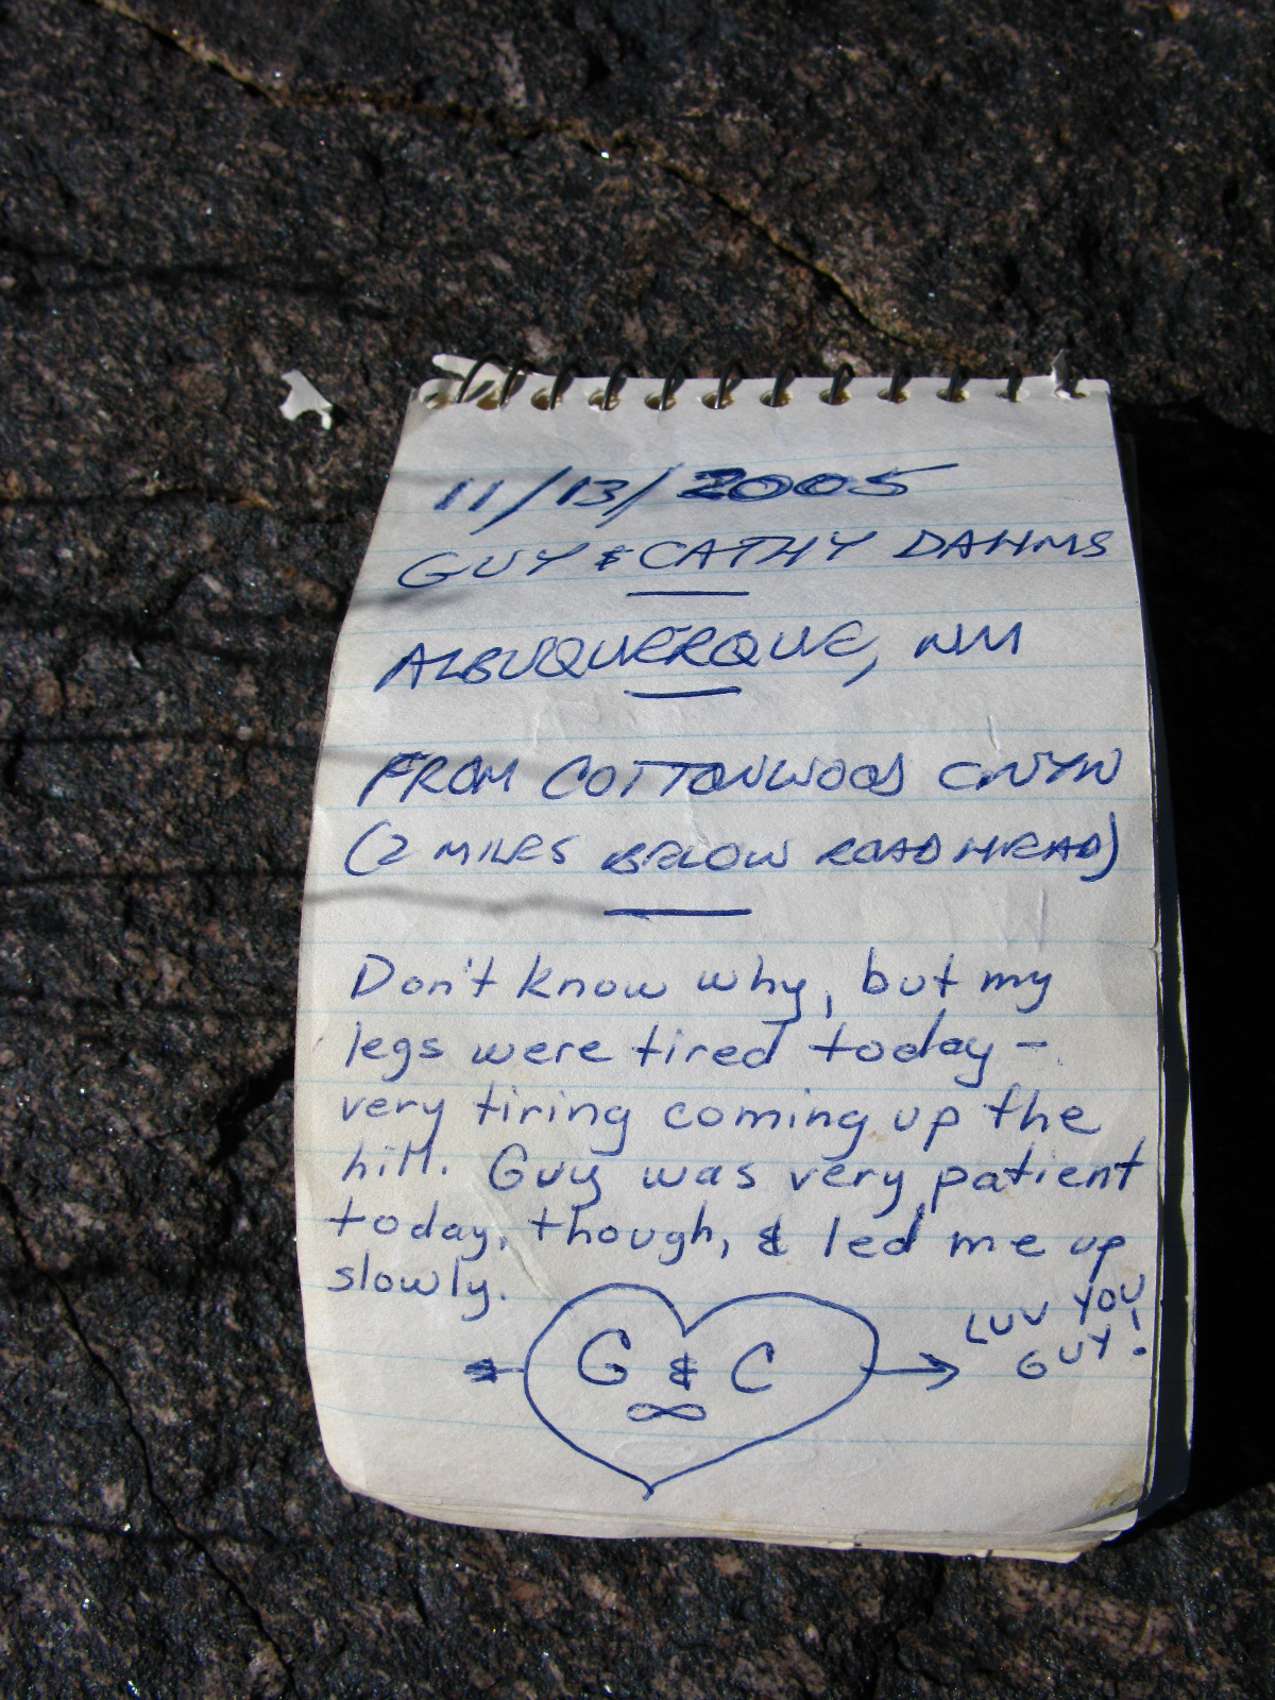 11/13/2005
GUY & CATHY DAHMS
ALBUQUERQUE, NM
FROM COTTONWOOD CNYN
(2 MILES BELOW ROADHEAD)
Don't know why, but my
legs were tired today -
very tiring coming up the
hill. Guy was very patient
today, though, & led me up
slowly.
LUV YOU
GUY!
G & C
∞